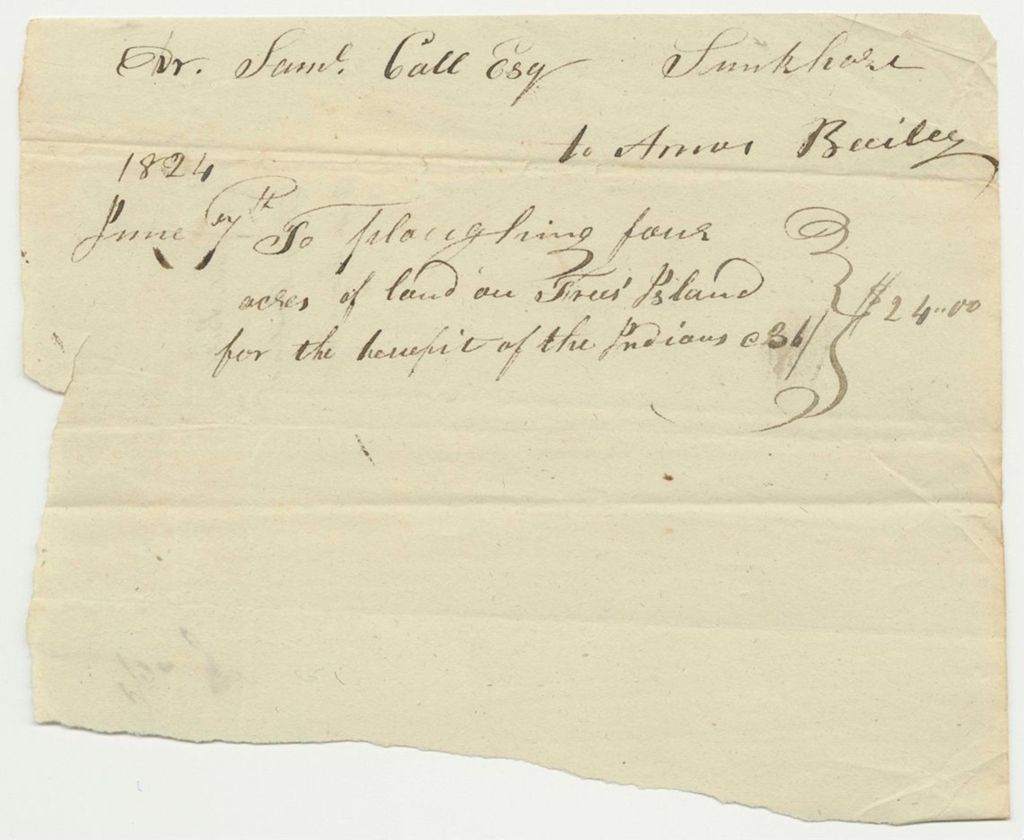 Dr. Saml. Call Esq Sunkhaze
to Amos Bailey
1824
June 7th To ploughing four
acres of land on Frees' Island
for the benefit of the Indians @ 36/
$24.00